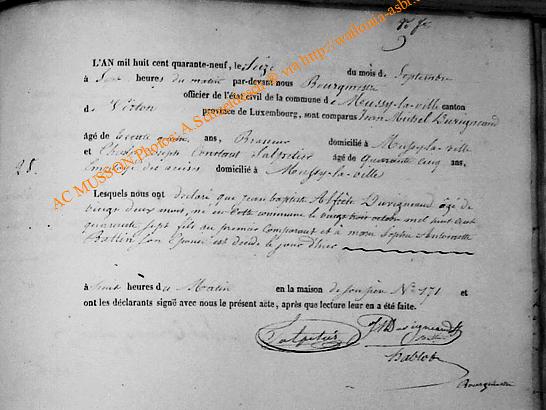 L'AN mil huit cent quarante-neuf, le Seize du mois de Septembre
à Sept heures du matin par-devant nous Bourgmestre
officier de l'état civil de la commune de Mussy-la-ville canton
de Virton province de Luxembourg, sont comparus Jean Michel Duvigneaud
âgé de trente quatre ans, Brasseur domicilié à Mussy-la-ville
et Charles Joseph Constant Salpetier âgé de quarante cinq ans,
Employé des accises domicilié à Mussy-la-ville
28.
Lesquels nous ont déclaré que jean baptiste Alfred Duvigneaud âgé de
vingt deux mois, né en cette commune le vingt trois octobre mil huit cent
quarante sept fils du premier Comparant et de marie Sophie Antoinette
son Epouse est décédé le jour d'hier
à huit heures du Matin en la maison de son père N° 171 et
ont les déclarants signé avec nous le présent acte, après que lecture leur en a été faite.
Salpetier
Duvigneaud
hablot
Bourgmestre
AC MUSSON Photos: A. Schmetorsch @ via http://wallonia-asbl